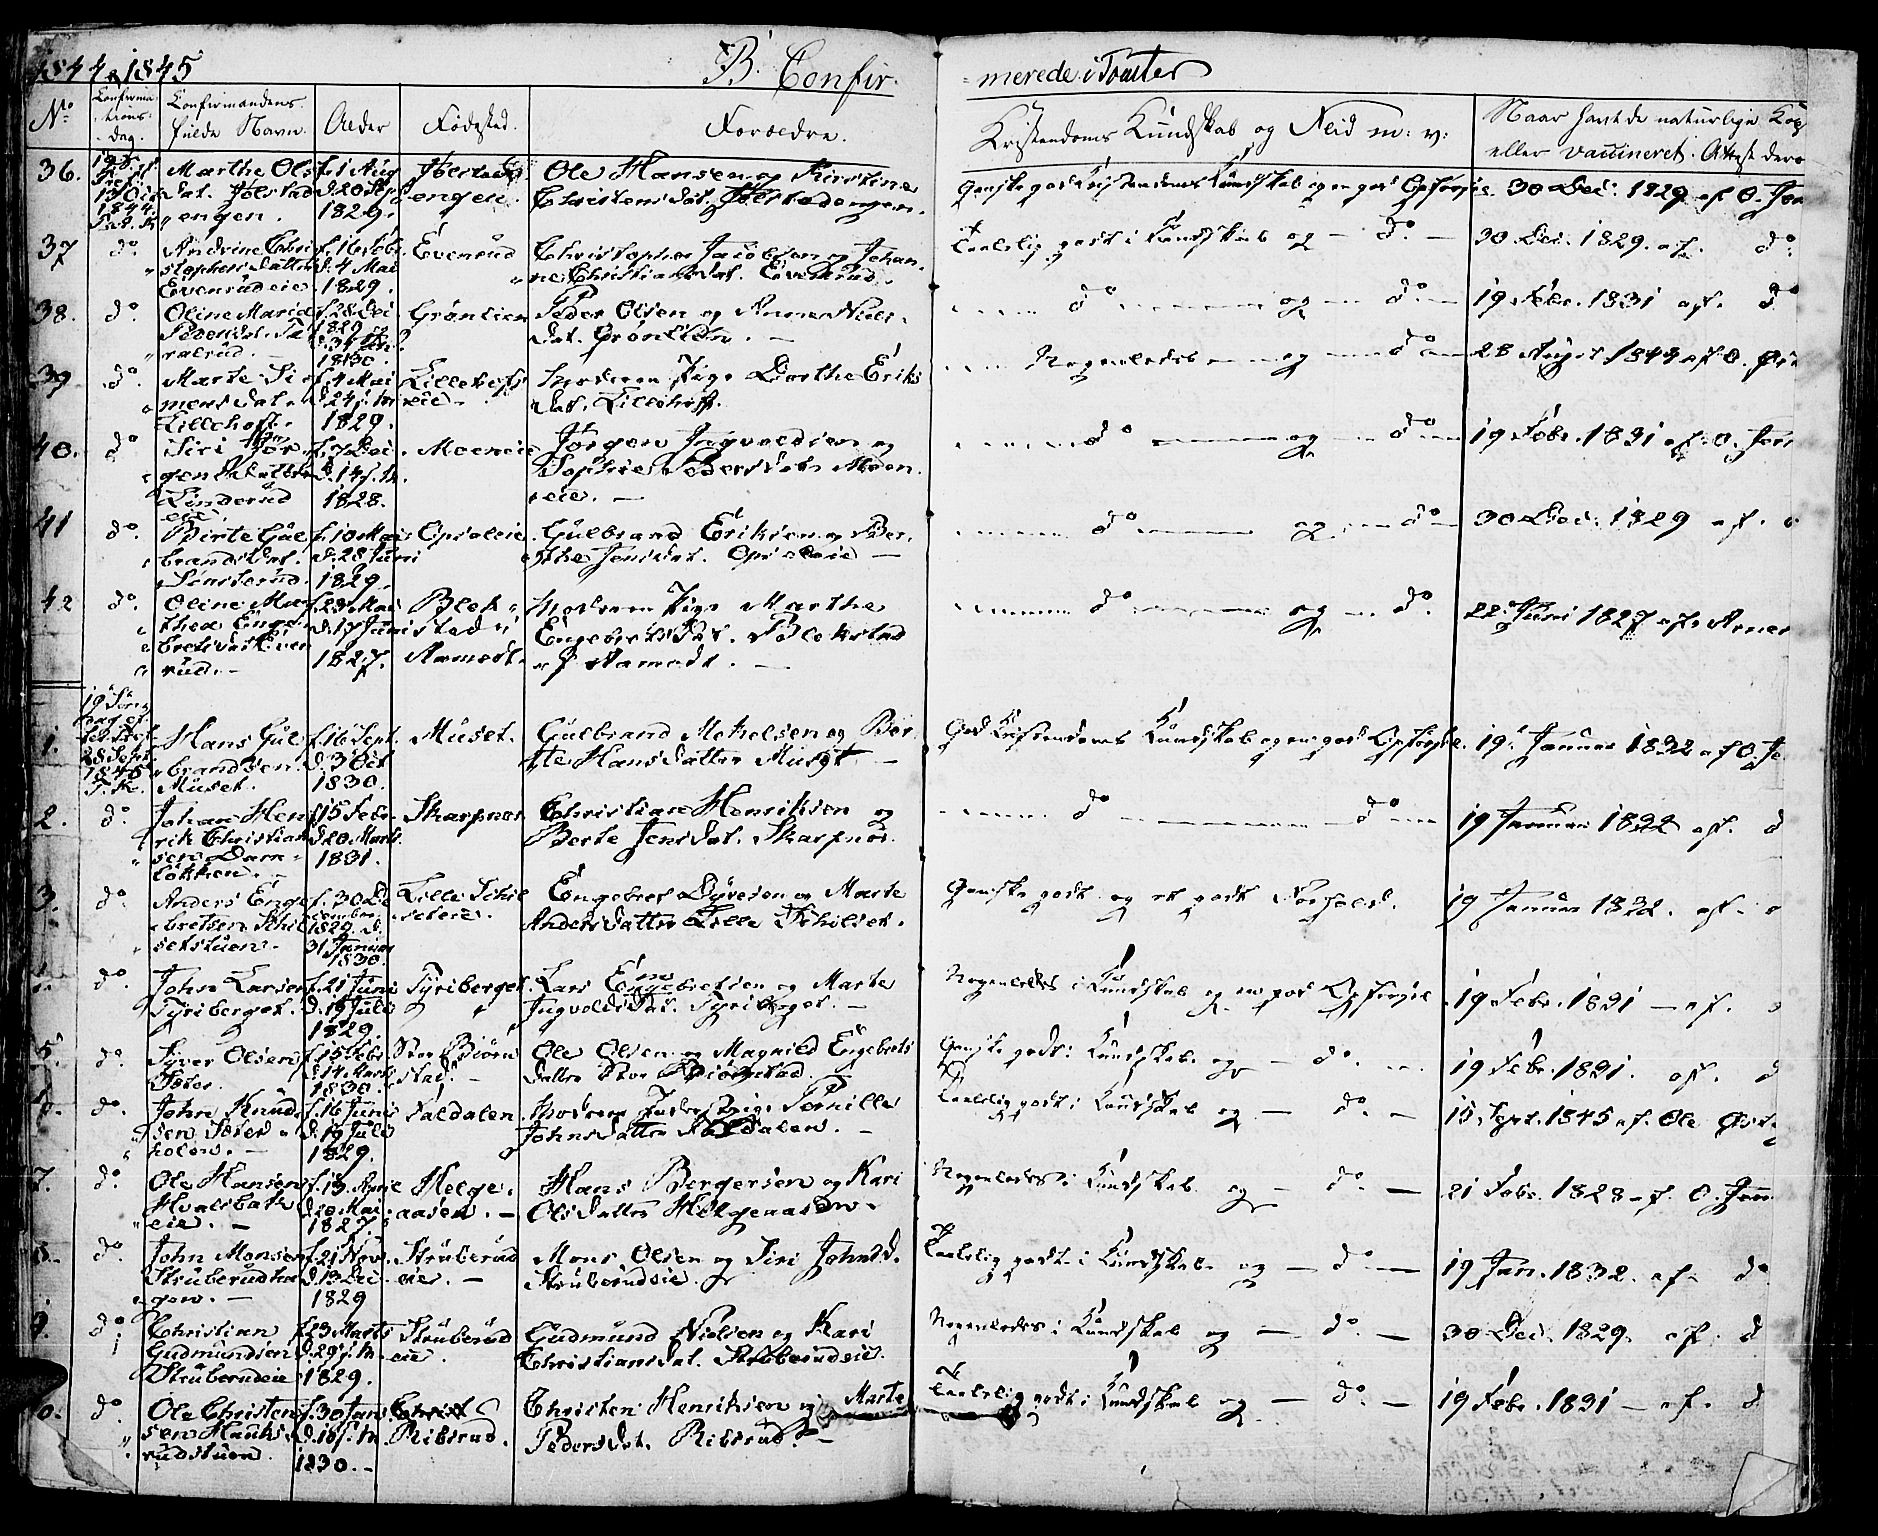 1844 & 1845
B. Confir-
merede i Trauter
No
Confirma-
tions-
dag.
Konfirmandens
fulde Navn.
Alder
Fødested.
Forældre.
Kristendoms Kundskab og Flid m: v:
Naar havt de naturlige Kop
eller vaccineret. Attest ders
36.
1844
Marthe Ols
dat.
engen.
f. 1 Aug
d. 20 Sept
1829.
engen.
Ole Hansen og Kirstine
Christensdat.
Ganske god Kristendoms Kundskab og en god Opførsel.
30 Dec. 1829 af O. Jen
37
do.
Andrine Chris
stophersdatter
Evenrudeie.
f. 16 Febr.
d. 4 Mai
1829.
Evenrud
Christopher Jacobsen og Johan-
ne Christiansdat. Evenrud.
Taalelig godt i Kundskab og — do. —
30 Dec. 1829. af. do.
38.
do.
Oline Marie
Pedersdat.
f. 28 Dec
1829
1830.
Grønlien
Peder Olsen og Anne Niels-
dat. Grønlien. —
do og — do. —
19 Febr. 1831 af. do
39
do.
Marte Si
mensdat.
Lillehoff.
f. 4 Mai
d. 24 s. M.
1829.
Lillehoffs
eie.
Moderen Pige Dorthe Eriks
dat. Lillehoff.
Nogenledes og do
28 August 1844 af O.
40.
do
Siri Jør-
gensdatter
Linderud
eie.
f. 7 Dec.
d. 14 s. M.
1828.
Moeneie
Jørgen Ingvoldsen og
Sophie Pedersdat. Moen
eie. —
do og do
19 Febr. 1831 af O. Jen
41
do.
Birte Gul
brandsdat.
f. 10 Mai
d. 28 Juni
1829.
Opsaleie
Gulbrand Eriksen og Ber-
the Jensdat. Opsaleie —
do og do
30 Dec. 1829 af.
42
do.
Oline Mar
thea Enge-
bretsdat. Even
rud. —
f. 23 Mai
d. 17 Juni
1827.
Blek-
stad i
Aamodt.
Moderen Pige Marthe
Engebretsdat. Blekstad
i Aamodt. —
do og do.
22 Juni 1827 af. Arnes
1.
28 Sept.
1845
Hans Gul
brandsen
Muset.
f. 16 Sept.
d. 3 Oct
1830.
Muset.
Gulbrand Mikelsen og Ber
the Hansdatter Muset —
God Kristendoms Kundskab og en god Opførsel.
19 Januar 1832 af O. Je
2.
do.
Johan Hen
rik Christian
sen Dam-
løkken. —
f. 15 Febr.
d. 20 Marts
1831.
Skarpnes
Christian Henriksen og
Berte Jensdat. Skarpnes.
do do
19 Januar 1832 af. d
3.
do
Anders Enge
bretsen Skil
setstuen.
f. 30 De
cember
1829. d.
31 Januar
1830.
Lille Skil
seteie.
Engebret Dyresen og Marte
Andersdatter Lille Skilset.
Ganske godt og et godt Forhold.
19 Januar 1832. af.
do.
John Larsen
Tyriberget.
f. 21 Juni
d. 19 Juli
1829.
Tyriberget.
Lars Engebretsen og Marte
Ingvoldsdat. Tyriberget. —
Nogenledes i Kundskab og en god Opførsel
19 Febr. 1831 — af.
5.
do.
Syver Olsen
f. 15 Febr.
d. 14 Marts
1830.
Stor Biørn
stad. —
Ole Olsen og Magnild Engebrets
datter Stor Biørnstad. —
Ganske godt i Kundskab og — do.
19 Febr. 1831. af. d
do.
John Knud
sen
f. 16 Juni
d. 19 Juli
1829.
Faldalen
Moderen Pernille
Johnsdatter Faldalen. —
Taalelig godt i Kundskab og — do. —
15 Sept. 1845 af. Ole
7.
do.
Ole Hansen
eie. —
f. 13 April
d. 20 Mai
1827.
Helge-
aasen. —
Hans Bergersen og Kari
Olsdatter Helgeaasen.
Nogenledes i Kundskab og — do. —
21 Febr. 1828 af. O. Jen
8.
do.
John Monsen
Struberudha
gen. —
f. 21 Nov.
d. 13 Dec.
1829
Struberud
eie. —
Mons Olsen og Siri Johnsd.
Struberudeie.
Taalelig godt i Kundskab og — do —
19 Jan. 1832. af. do
9.
do
Christian
Gudmundsen
Struberudeie
f. 23 Marts
d. 29 s. M.
1829.
Struberud
eie.
Gudmund Nielsen og Kari
Christiansdat. Struberudeie.
Nogenledes i Kundskab og — do. —
30 Dec. 1829. af. d
0.
do.
Ole Christen
sen Hauks
rudstuen.
f. 30 Jan.
d. 18 s. M.
1830. —
Ribsrud.
Christen Henriksen og Marte
Pedersdat. Ribsrud. —
Taalelig godt i Kundskab og — do. —
19 Febr. 1831 — af. d